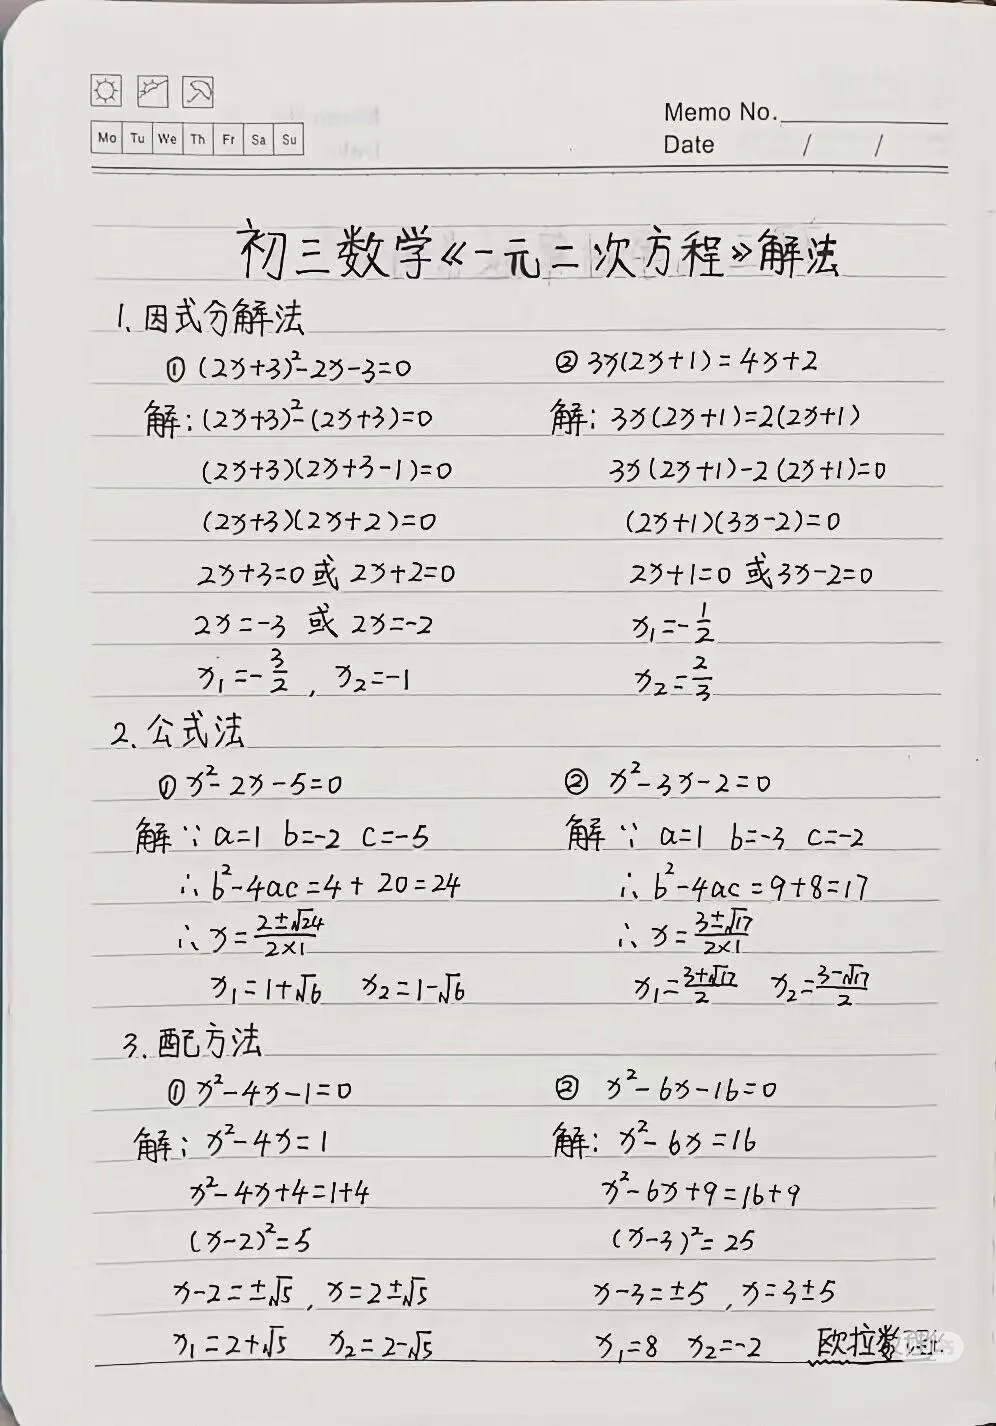 Memo No.
Mo Tu We Th Fr Sa Su
Date / /
初三数学《一元二次方程》解法
1、因式分解法
① (2x+3)²-2x-3=0 ② 3x(2x+1)=4x+2
解:(2x+3)²-(2x+3)=0 解:3x(2x+1)=2(2x+1)
(2x+3)(2x+3-1)=0 3x(2x+1)-2(2x+1)=0
(2x+3)(2x+2)=0 (2x+1)(3x-2)=0
2x+3=0或 2x+2=0 2x+1=0 或3x-2=0
2x=-3 或 2x=-2 x₁=-1/2
x₁=-3/2, x₂=-1 x₂=2/3
2.公式法
① x²-2x-5=0 ② x²-3x-2=0
解∵ a=1 b=-2 c=-5 解∵ a=1 b=-3 c=-2
∴ b²-4ac=4+20=24 ∴ b²-4ac=9+8=17
∴ x=(2±√24)/(2×1) ∴ x=(3±√17)/(2×1)
x₁=1+√6 x₂=1-√6 x₁=(3+√17)/2 x₂=(3-√17)/2
3.配方法
① x²-4x-1=0 ② x²-6x-16=0
解: x²-4x=1 解: x²-6x=16
x²-4x+4=1+4 x²-6x+9=16+9
(x-2)²=5 (x-3)²=25
x-2=±√5, x=2±√5 x-3=±5, x=3±5
x₁=2+√5 x₂=2-√5 x₁=8 x₂=-2 欧拉数理